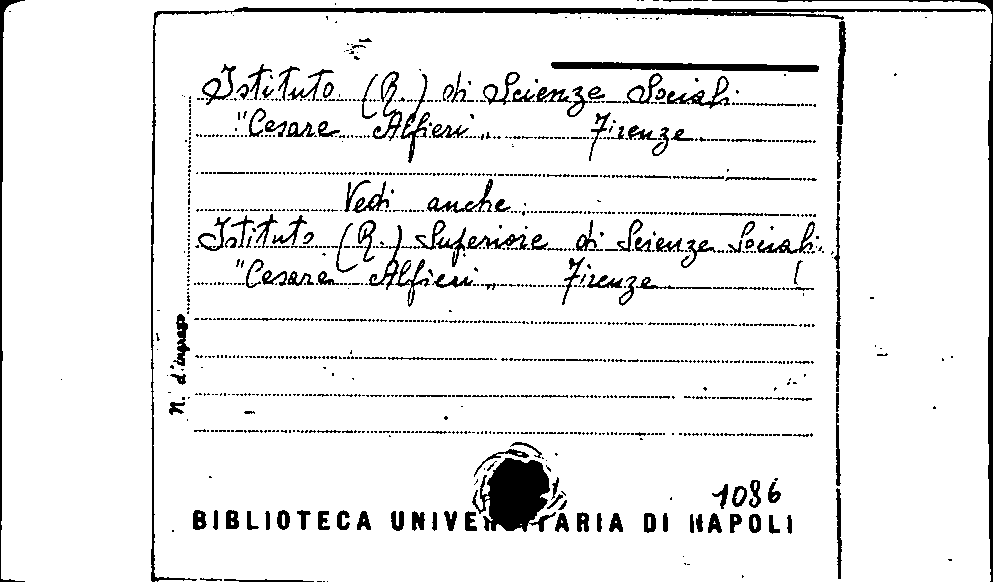 Istituto (R.) di Scienze Sociali
"Cesare Alfieri" Firenze.
Vedi anche:
Istituto (R.) Superiore di Scienze Sociali
"Cesare Alfieri" Firenze
N. d'ingresso
1086
BIBLIOTECA UNIVERSITARIA DI NAPOLI